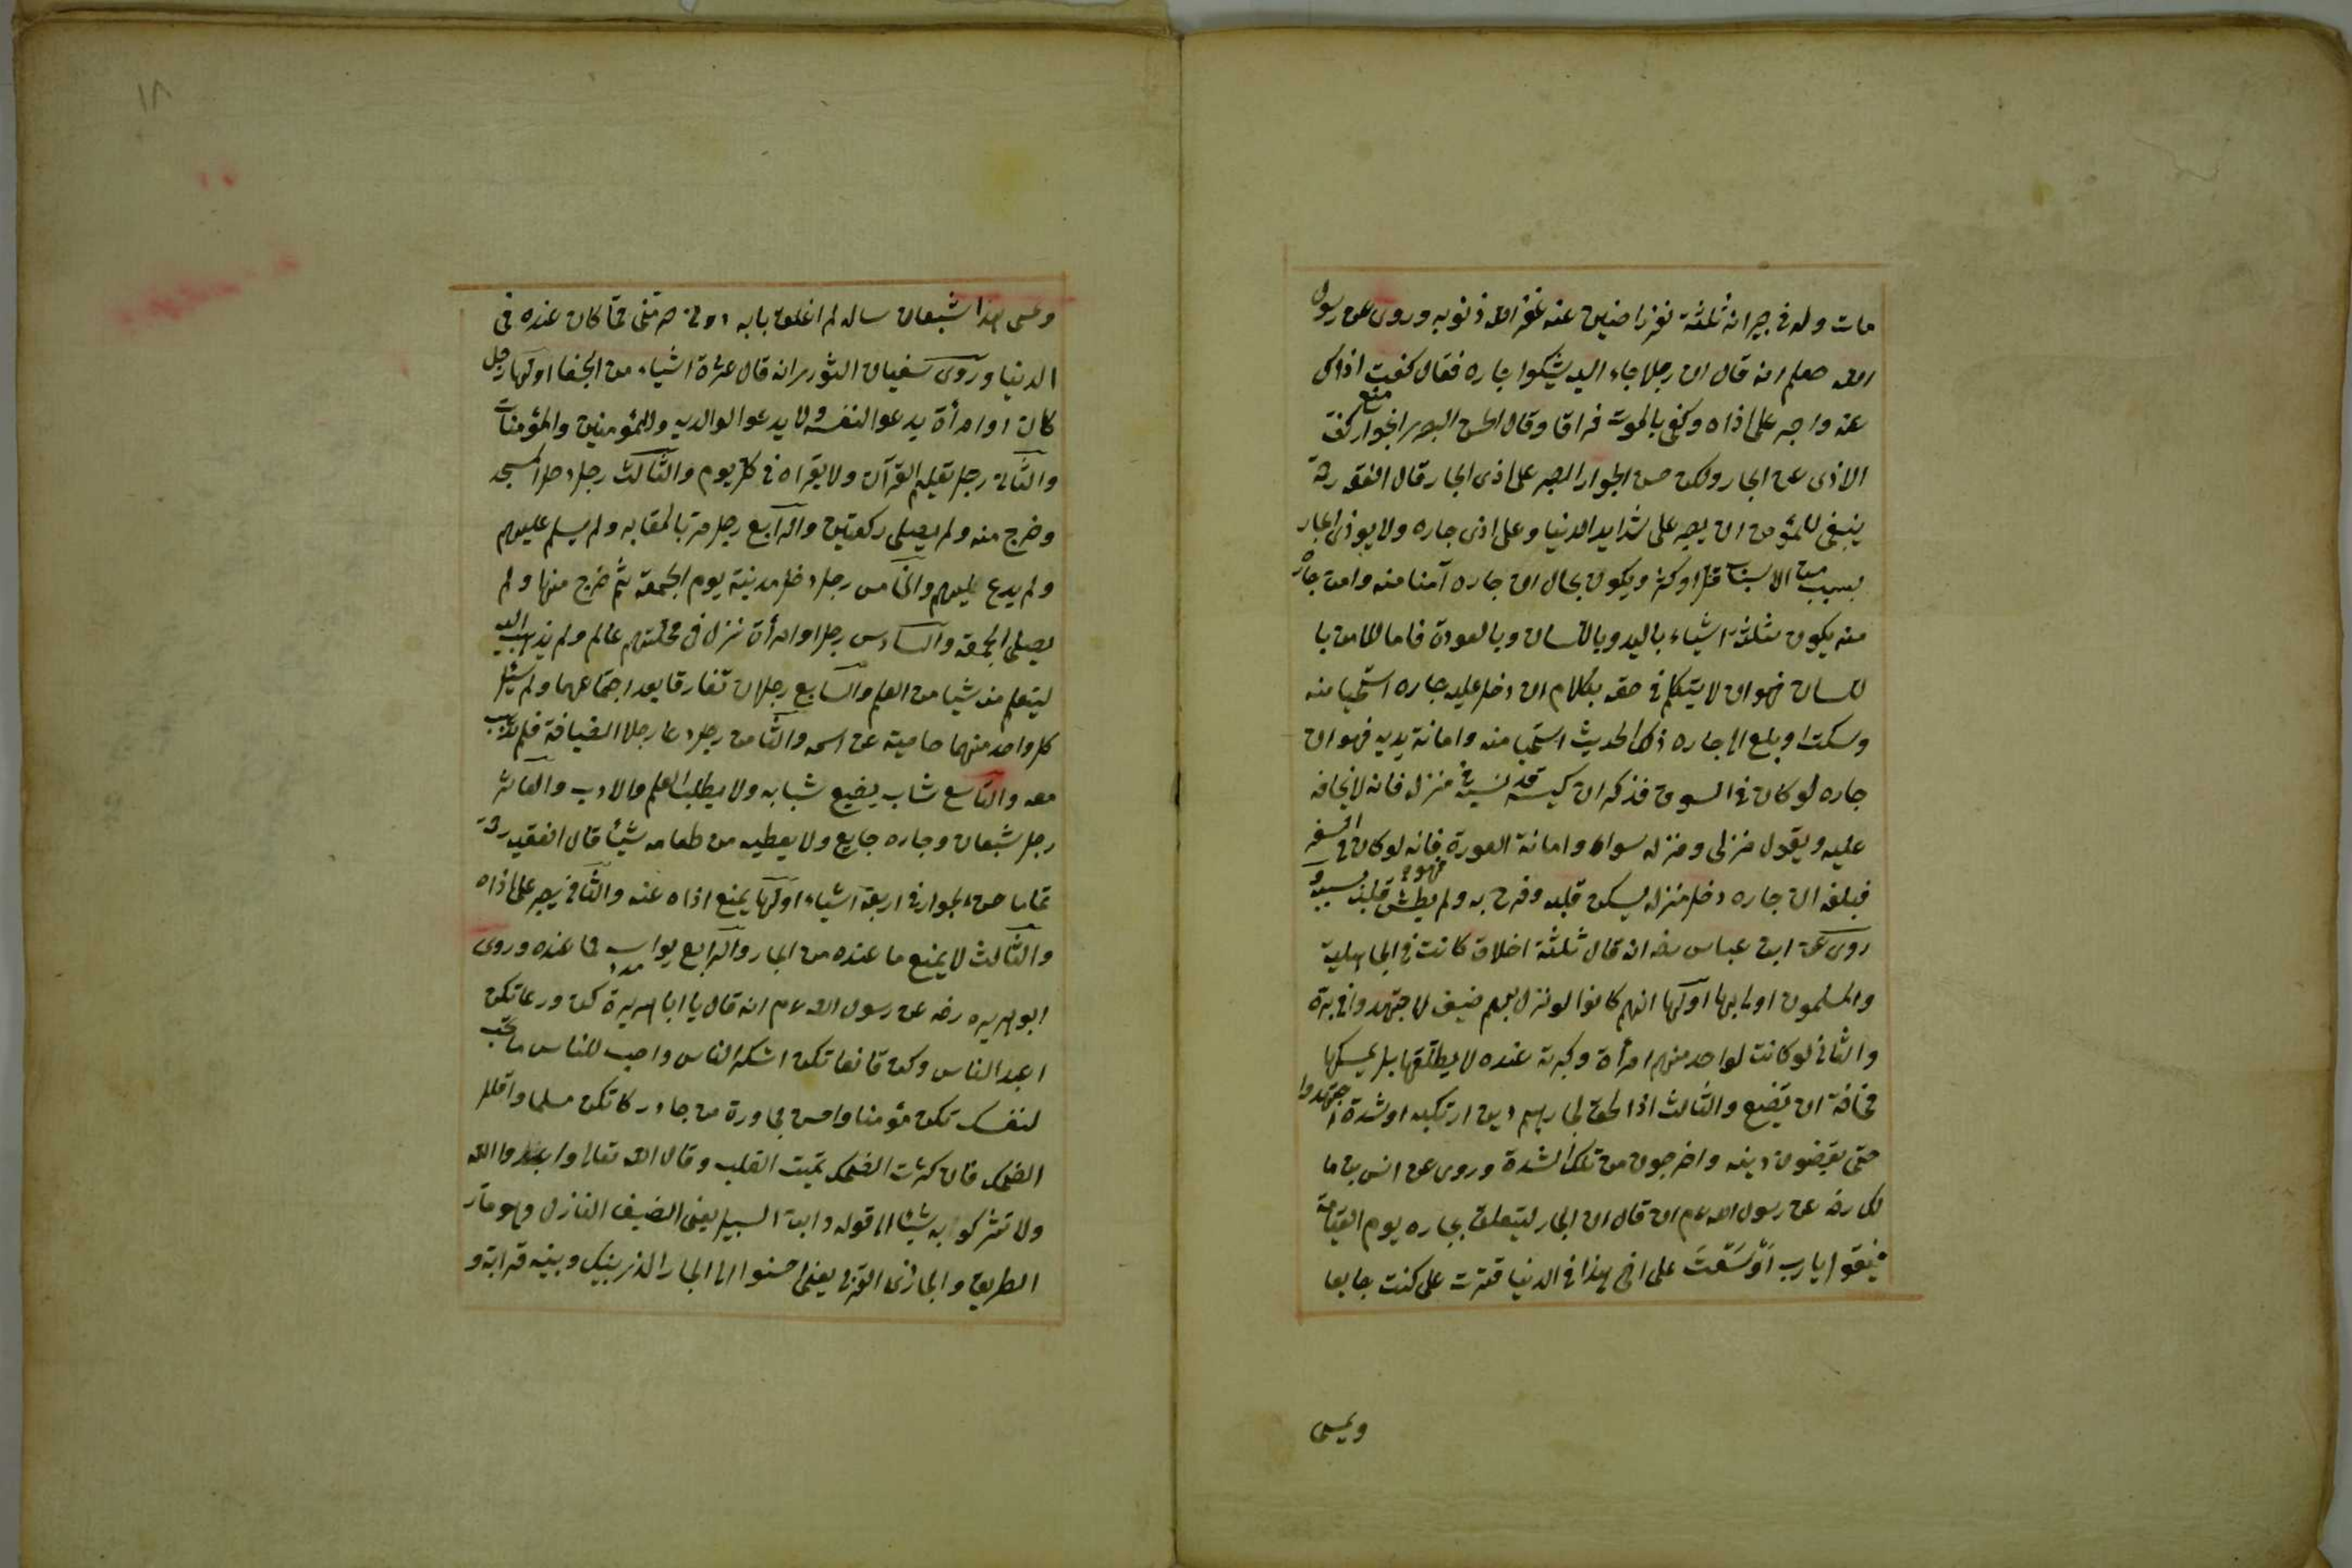 مات وله فى جيرانه ثلثة نفر راضين عنه غفر الله ذنوبه وروى عن رسول
الله صعلم انه قال ان رجلا جاء اليه يشكوا جاره فقال كف اذاك
عنه واصبر على اذاه وكفى بالموت فراقا وقال الحسن البصرى الجوار كف
منع
الاذى عن الجار ولكن حسن الجوار الصبر على اذى الجار قال الفقيه رح
ينبغى للمؤمن ان يصبر على شدايد الدنيا وعلى اذى جاره ولا يوذى الجار
بسبب من الاسباب قل او كثر ويكون بحال ان جاره آمنا منه وامن جاره
منه يكون بثلثة اشياء باليد وباللسان وبالعورة فاما الامان با
للسان فهو ان لا يتكلم فى حقه بكلام ان دخل عليه جاره استحيا منه
وسكت او بلغ الى جاره ذلك الحديث استحيا منه وامانة يديه فهو ان
جاره لو كان فى السوق فذكر ان كيسه قد نسيه فى منزله فانه لا يخافه
عليه ويقول منزلى ومنزله سواء وامانة العورة فهو فانه لو كان فى السفر
فبلغه ان جاره دخل منزله يسكن قلبه وفرح به ولم يطش قلبه بسببه و
روى عن ابن عباس رضه انه قال ثلثة اخلاق كانت فى الجاهلية
والمسلمون اولى بها اولها انهم كانوا لو نزل بهم ضيف لاجتهدوا فى بره
والثانى لو كانت لواحد منهم امرأة وكبرت عنده لا يطلقها بل يمسكها
مخافة ان تضيع والثالث اذا لحق لجارهم دين ارتكبه او شدة اجتهدوا
حتى يقضون دينه واخرجون من تلك الشدة وروى عن انس بن ما
لك رضه عن رسول الله عم انه قال ان الجار ليتعلق بجاره يوم القيامة
فيقول يارب اوسعت على اخى هذا فى الدنيا قترت على كنت جايعا
ويمسى
١٨
ويمسى هذا شبعان ساله لم اغلق بابه دونى حرمنى مما كان عنده فى
الدنيا وروى سفيان الثورى انه قال عشرة اشياء من الجفا اولها رجل
كان او امرأة يدعوا لنفسه ولا يدعوا لوالديه وللمؤمنين والمؤمنات
والثانى رجل تعليم القرآن ولا يقراه فى كل يوم والثالث رجل دخل المسجد
وخرج منه ولم يصلى ركعتين والرابع رجل مر بالمقابر ولم يسلم عليهم
ولم يدع عليهم والخامس رجل دخل مدينة يوم الجمعة ثم خرج منها ولم
يصلى الجمعة والسادس رجل او امرأة نزل فى محلتهم عالم ولم يذهب اليه
ليتعلم منه شيا من العلم والسابع رجلان تفارقا بعد اجتماعهما ولم يسئل
كل واحد منهما صاحبه عن اسمه والثامن رجل دعا رجلا الضيافة فلم يذهب
معه والتاسع شاب يضيع شبابه ولا يطلب العلم والادب والعاشر
رجل شبعان وجاره جايع ولا يعطيه من طعامه شيئا قال الفقيه رح
تمام حسن الجوار فى اربعة اشياء اولها يمنع اذاه عنه والثانى يصبر على اذاه
والثالث لا يمنع ما عنده من الجار والرابع يواسيه مما عنده وروى
ابو هريره رضه عن رسول الله عم انه قال يا ابا هريرة كن ورعا تكن
اعبد الناس وكن قانعا تكن اشكر الناس واحب للناس ما تحب
لنفسك تكن مؤمنا واحسن مجاورة من جاورك تكن مسلما واقلل
الضحك فان كثرت الضحك تميت القلب وقال الله تعالى واعبدوا الله
ولا تشركوا به شيئا الى قوله وابن السبيل يعنى الضيف النازل وهو مار
الطريق والجار ذى القربى يعنى احسنوا الى الجار الذى بينك وبينه قرابة و